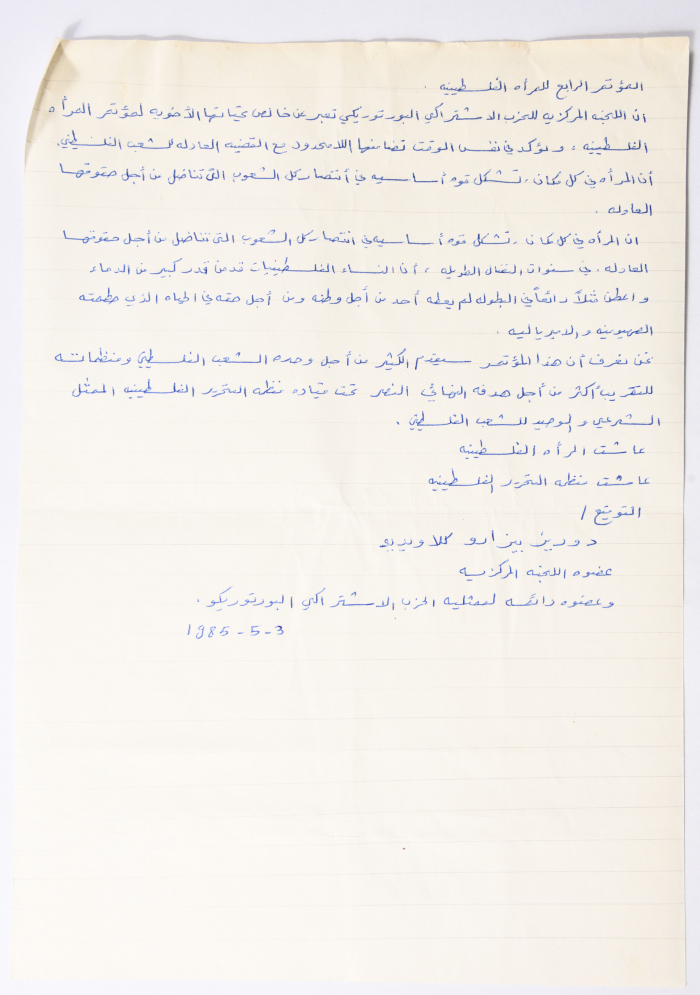 المؤتمر الرابع للمرأه الفلسطينيه .
ان اللجنه المركزيه للحزب الاشتراكي البورتوريكي تعبر عن خالص تحياتها الأخويه لمؤتمر المرأه
الفلسطينيه ، ونؤكد في نفس الوقت تضامنها اللامحدود مع القضيه العادله للشعب الفلسطيني.
أن المرأه في كل مكان ، تشكل قوه أساسيه في أنتصار كل الشعوب التي تناضل من أجل حقوقها
العادله .
ان المرأه في كل مكان ، تشكل قوه أساسيه في انتصار كل الشعوب التي تناضل من أجل حقوقها
العادله . في سنوات النضال الطويله ، أن النساء الفلسطينيات قدمن قدر كبير من الدماء
واعطن مثلاً رائعاً في البطوله لم يعطه أحد من أجل وطنه ومن أجل حقه في الحياه الذي حطمته
الصهيونيه والامبرياليه .
نحن نعرف أن هذا المؤتمر سيقدم الكثير من أجل وحده الشعب الفلسطيني ومنظماته
للتقريب أكثر من أجل هدفه النهائي النصر تحت قياده منظمه التحرير الفلسطينيه الممثل
الشرعي والوحيد للشعب الفلسطيني .
عاشت المرأه الفلسطينيه
عاشت منظمه التحرير الفلسطينيه
التوقيع /
دوريز بيزارو كلاويديو
عضوه اللجنه المركزيه
وعضوه دائمه لممثليه الحزب الاشتراكي البورتوريكو .
1985-5-3